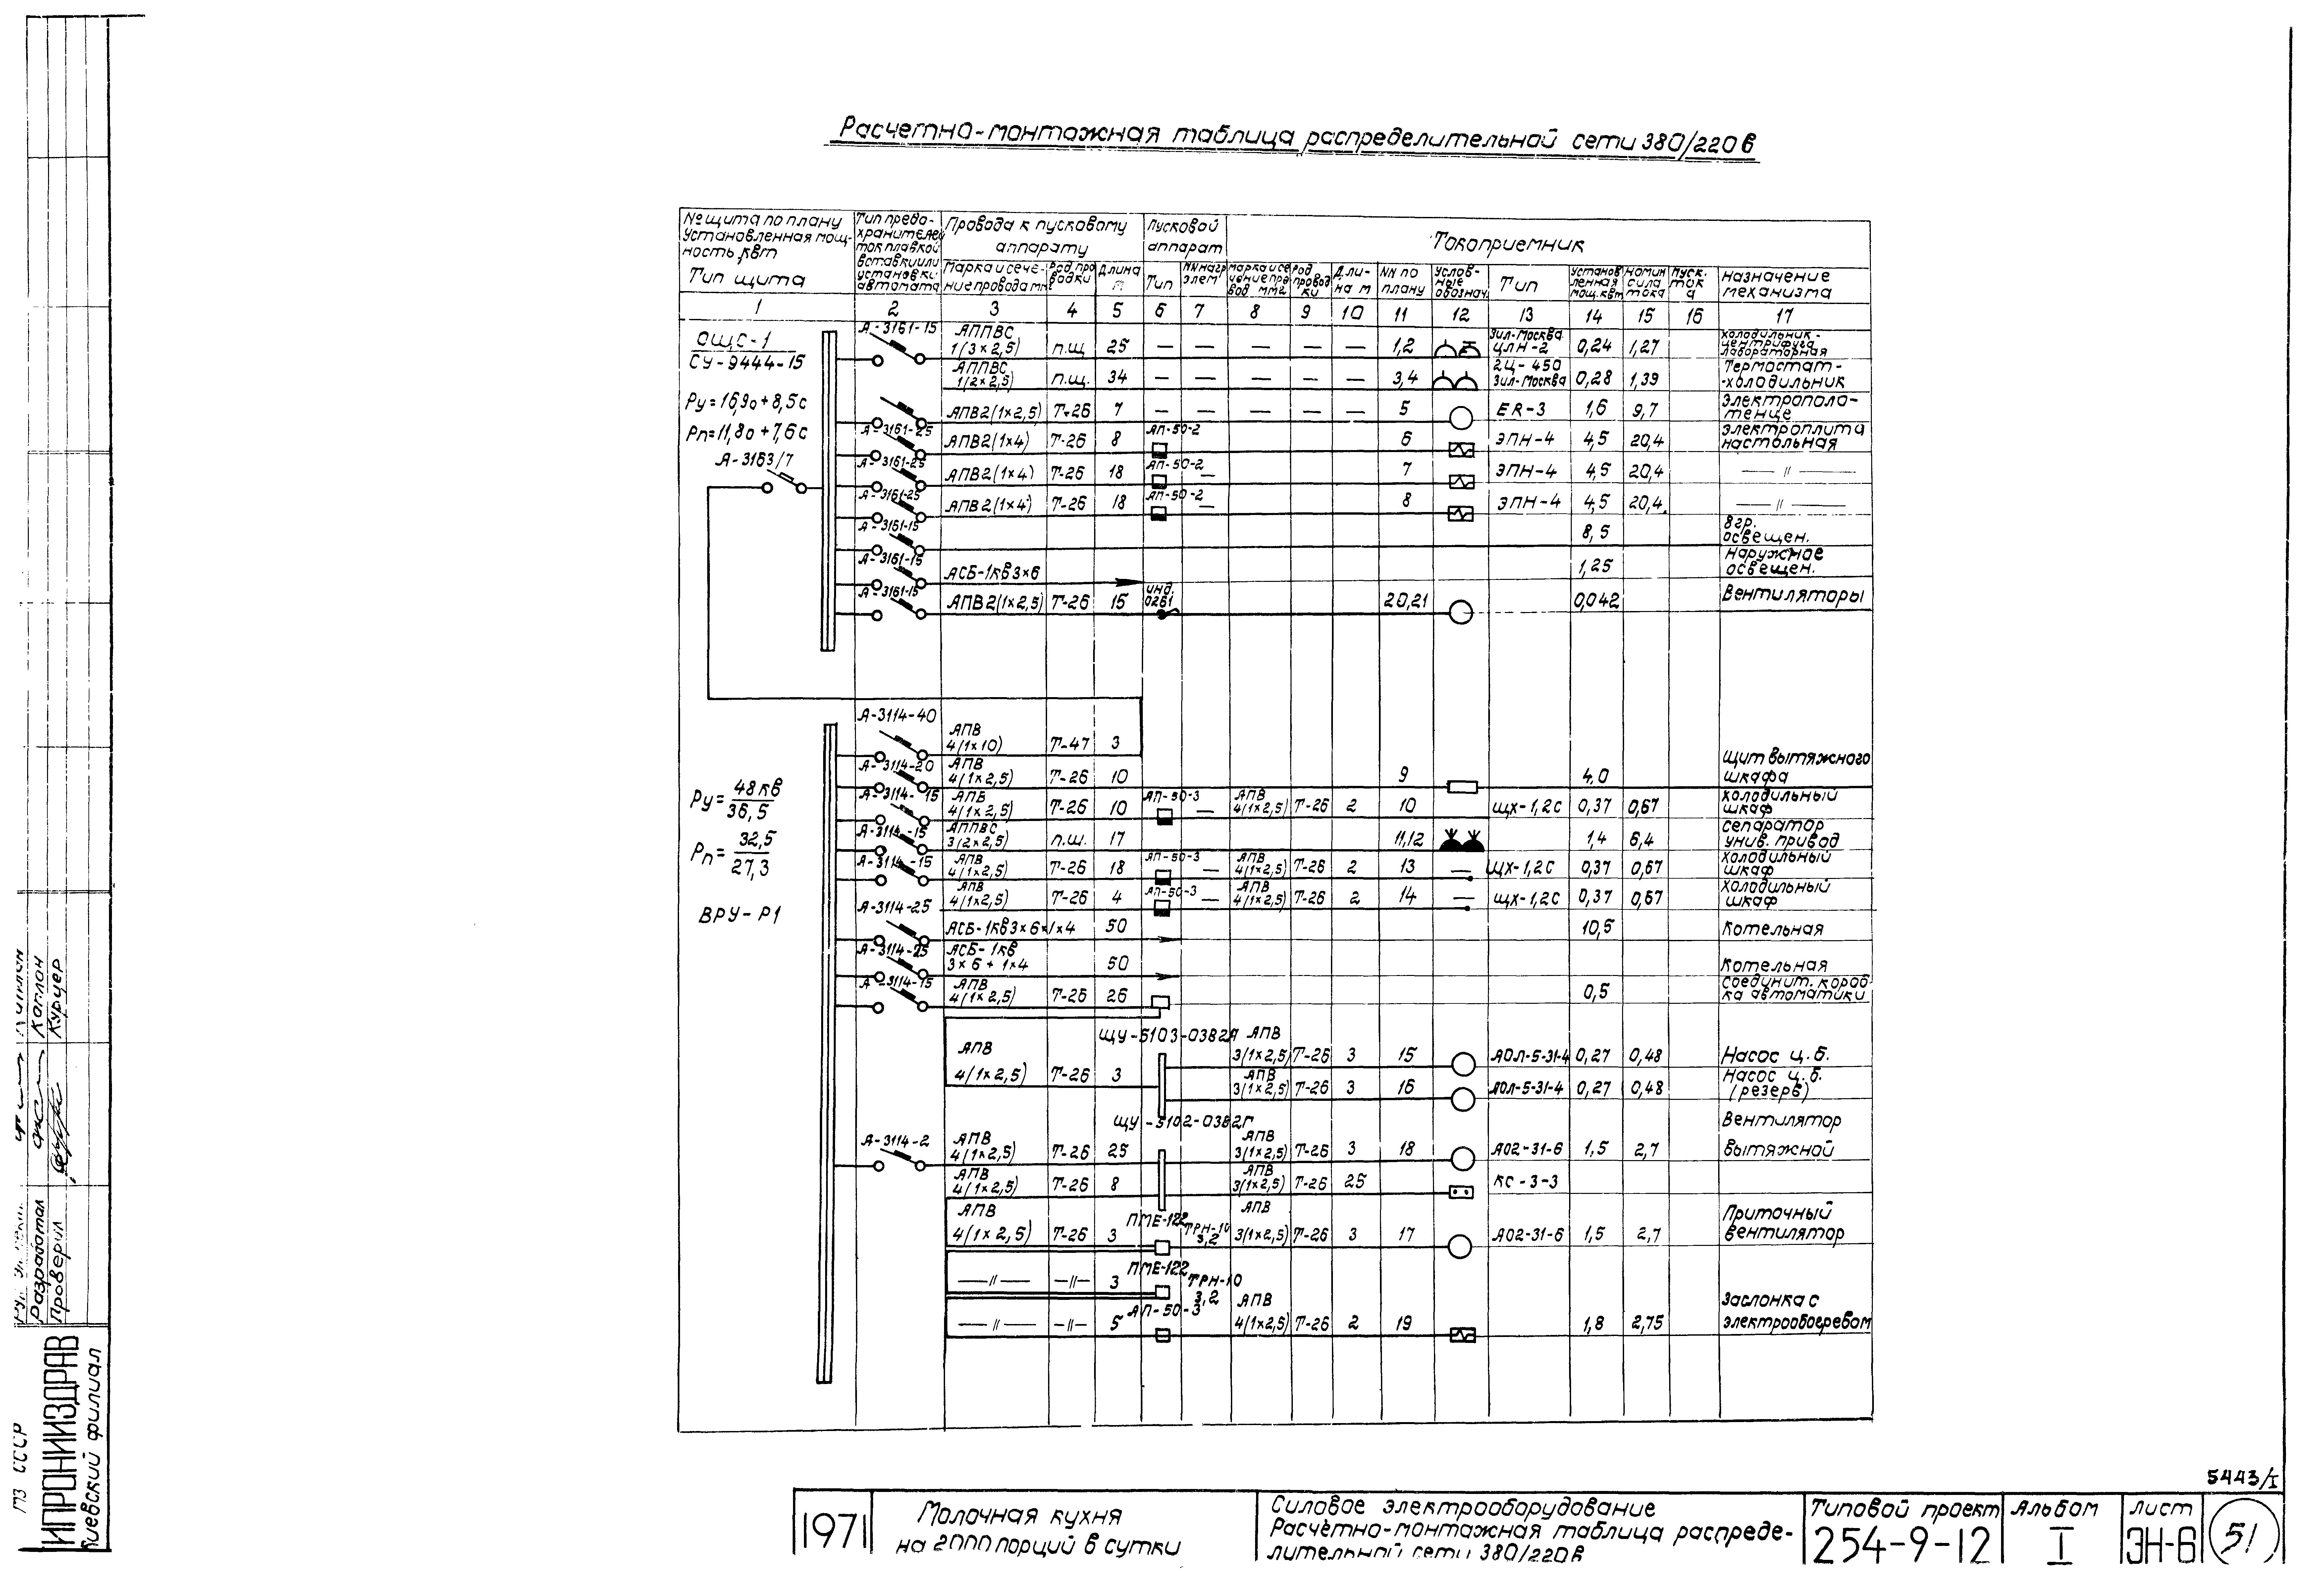 Расчетно-монтажная таблица распределительной сети 380/220в
№ щита по плану
Установленная мощ-
ность, квт
Тип щита
Тип предо-
хранителей
ток плавкой
вставки или
установки
автомата
Провода к пусковому
аппарату
Марка и сече-
ние провода мм²
Род про
водки
Длина
м
Пусковой
аппарат
Тип
NN нагр
элем
Токоприемник
Марка и се
чение про
вод мм2
Род
провод
ки
Дли-
на м
NN по
плану
Услов-
ные
обознач.
Тип
Установ
ленная
мощ. квт
Номин
сила
тока
Пуск.
ток
а
Назначение
механизма
1 2 3 4 5 6 7 8 9 10 11 12 13 14 15 16 17
ОЩС-1
СУ-9444-15
Ру=16,9о+8,5с
Рп=11,8о+7,6с
А-3163/7
А-3161-15 АППВС 1(3×2,5) п.щ. 25 — — — — — 1,2 Зил-Москва ЦЛН-2 0,24 1,27 Холодильник- центрифуга лабораторная
АППВС 1(2×2,5) п.щ. 34 — — — — — 3,4 2Ц-450 Зил-Москва 0,28 1,39 Термостат- -холодильник
АПВ2(1×2,5) Т-26 7 — — — — — 5 ER-3 1,6 9,7 Электрополо- тенце
А-3161-25 АПВ2(1×4) Т-26 8 АП-50-2 6 ЭПН-4 4,5 20,4 Электроплита настольная
А-3161-25 АПВ2(1×4) Т-26 18 АП-50-2 — 7 ЭПН-4 4,5 20,4 —〃 —
А-3161-25 АПВ2(1×4) Т-26 18 АП-50-2 — 8 ЭПН-4 4,5 20,4 — 〃 —
А-3161-15 8,5 8гр. освещен.
А-3161-15 АСБ-1кв3×6 1,25 Наружное освещен.
А-3161-15 АПВ2(1×2,5) Т-26 15 инд. 0261 20,21 0,042 Вентиляторы
Ру= 48кв
36,5
Рп= 32,5
27,3
ВРУ-Р1
А-3114-40 АПВ 4(1×10) Т-47 3
А-3114-20 АПВ 4(1×2,5) Т-26 10 9 4,0 Щит вытяжного шкафа
А-3114-15 АПВ 4(1×2,5) Т-26 10 АП-50-3 — АПВ 4(1×2,5) Т-26 2 10 ЩХ-1,2С 0,37 0,67 Холодильный шкаф
А-3114-15 АППВС 3(2×2,5) п.щ. 17 11,12 1,4 6,4 Сепаратор унив. привод
А-3114-15 АПВ 4(1×2,5) Т-26 18 АП-50-3 — АПВ 4(1×2,5) Т-26 2 13 — ЩХ-1,2С 0,37 0,67 Холодильный шкаф
АПВ 4(1×2,5) Т-26 4 АП-50-3 — АПВ 4(1×2,5) Т-26 2 14 — ЩХ-1,2С 0,37 0,67 Холодильный шкаф
А-3114-25 АСБ-1кв3×6×1×4 50 10,5 Котельная
А-3114-25 АСБ-1кв 3×6+1×4 50 Котельная
А-3114-15 АПВ 4(1×2,5) Т-26 26 0,5 Соединит. короб- ка автоматики
ЩУ-5103-0382А
АПВ 4(1×2,5) Т-26 3 АПВ 3(1×2,5) Т-26 3 15 АОЛ-5-31-4 0,27 0,48 Насос ц.б.
АПВ 3(1×2,5) Т-26 3 16 АОЛ-5-31-4 0,27 0,48 Насос ц.б. (резерв)
ЩУ-5102-0382Г
А-3114-2 АПВ 4(1×2,5) Т-26 25 АПВ 3(1×2,5) Т-26 3 18 АО2-31-6 1,5 2,7 Вентилятор вытяжной
АПВ 4(1×2,5) Т-26 8 АПВ 3(1×2,5) Т-26 25 КС-3-3
АПВ 4(1×2,5) Т-26 3 ПМЕ-122 ТРН-10 3,2 АПВ 3(1×2,5) Т-26 3 17 АО2-31-6 1,5 2,7 Приточный вентилятор
—〃— —〃— 3 ПМЕ-122 ТРН-10 3,2
—〃— —〃— 5 АП-50-3 АПВ 4(1×2,5) Т-26 2 19 1,8 2,75 Заслонка с электрообогревом
5443/I
1971
Молочная кухня
на 2000 порций в сутки
Силовое электрооборудование
Расчётно-монтажная таблица распреде-
лительной сети 380/220в
Типовой проект
254-9-12
Альбом
I
Лист
ЭН-6
51
МЗ СССР
ГИПРОНИИЗДРАВ
Киевский филиал
Разработал
Проверил
Каплан
Курцер